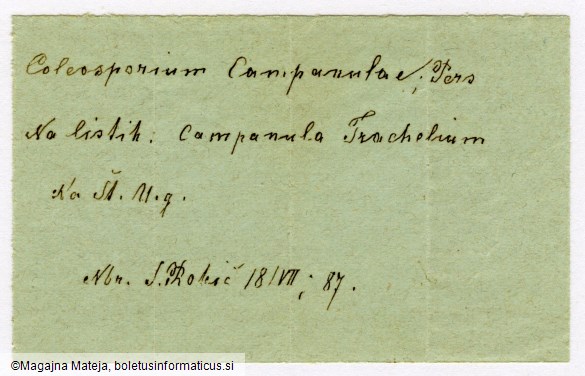 Coleosporium Campanulae, Pers
Na listih: Campanula Trachelium
Na Št. U. g.
Nbr. S. Robič 18/VII; 87.
©Magajna Mateja, boletusinformaticus.si